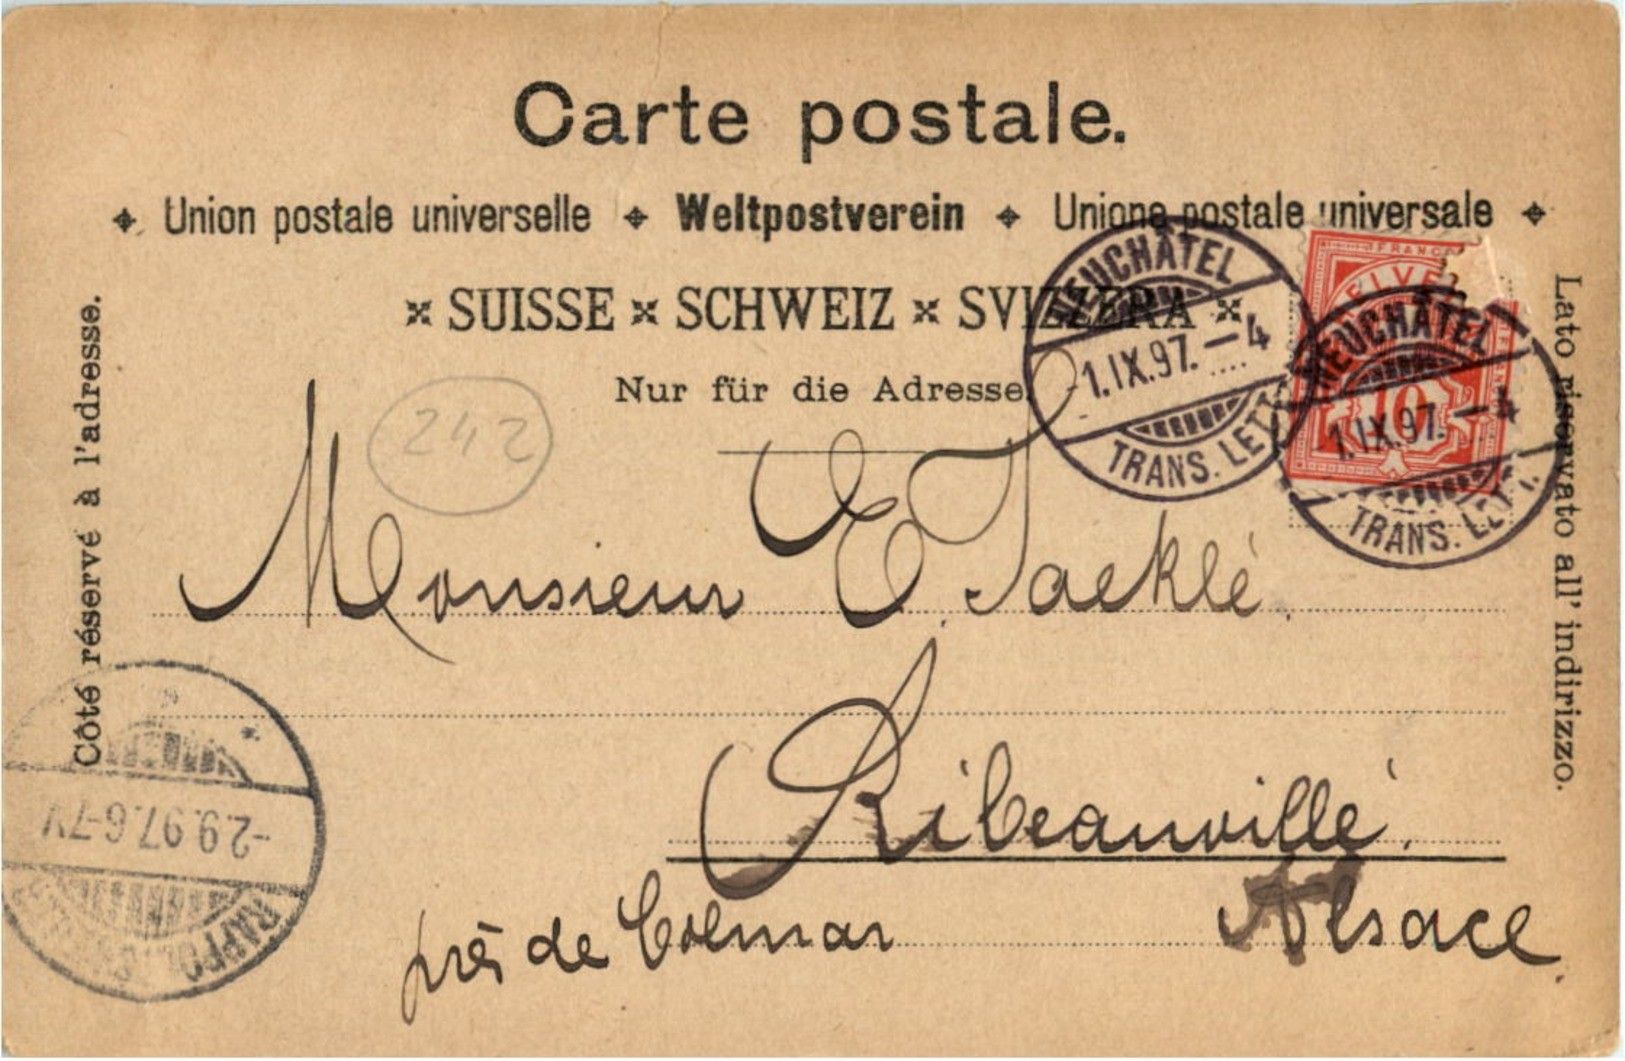 Carte postale.
Union postale universelle Weltpostverein Unione postale universale
SUISSE SCHWEIZ SVIZZERA
Nur für die Adresse.
Côté réservé à l'adresse.
Lato riservato all' indirizzo.
NEUCHÂTEL
1.IX.97.-4
TRANS. LETT.
FRANCO
HELVE
10
NEUCHÂTEL
1.IX.97.-4
TRANS. LETT.
242
Monsieur E. Jaeklé
Ribeauvillé.
près de Colmar Alsace.
-2.9.97.6-7V
RAPPOL